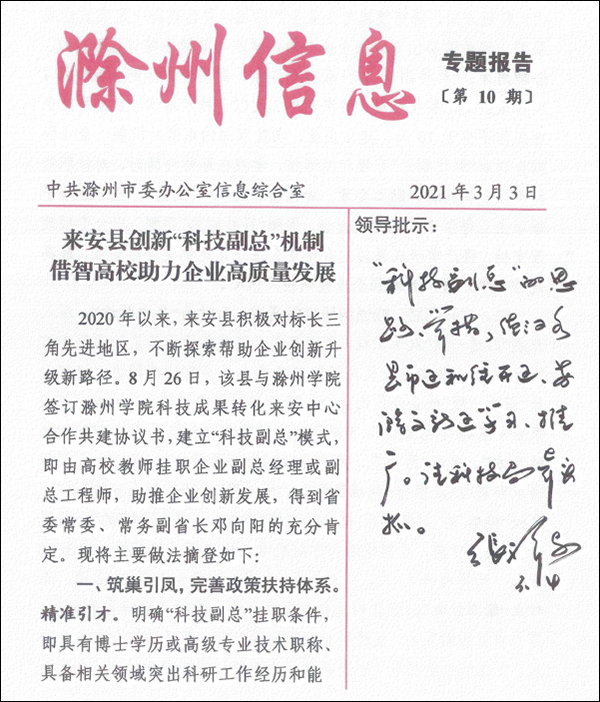 滁州信息
专题报告
〔第 10 期〕
中共滁州市委办公室信息综合室
2021 年 3 月 3 日
来安县创新“科技副总”机制
借智高校助力企业高质量发展
2020 年以来，来安县积极对标长三
角先进地区，不断探索帮助企业创新升
级新路径。8 月 26 日，该县与滁州学院
签订滁州学院科技成果转化来安中心
合作共建协议书，建立“科技副总”模式，
即由高校教师挂职企业副总经理或副
总工程师，助推企业创新发展，得到省
委常委、常务副省长邓向阳的充分肯
定。现将主要做法摘登如下：
一、筑巢引凤，完善政策扶持体系。
精准引才。明确“科技副总”挂职条件，
即具有博士学历或高级专业技术职称、
具备相关领域突出科研工作经历和能
领导批示：
“科技副总”的思
路、举措，值得各
县市区和经开区、苏
滁 区学习、推
广。请科技局
抓。